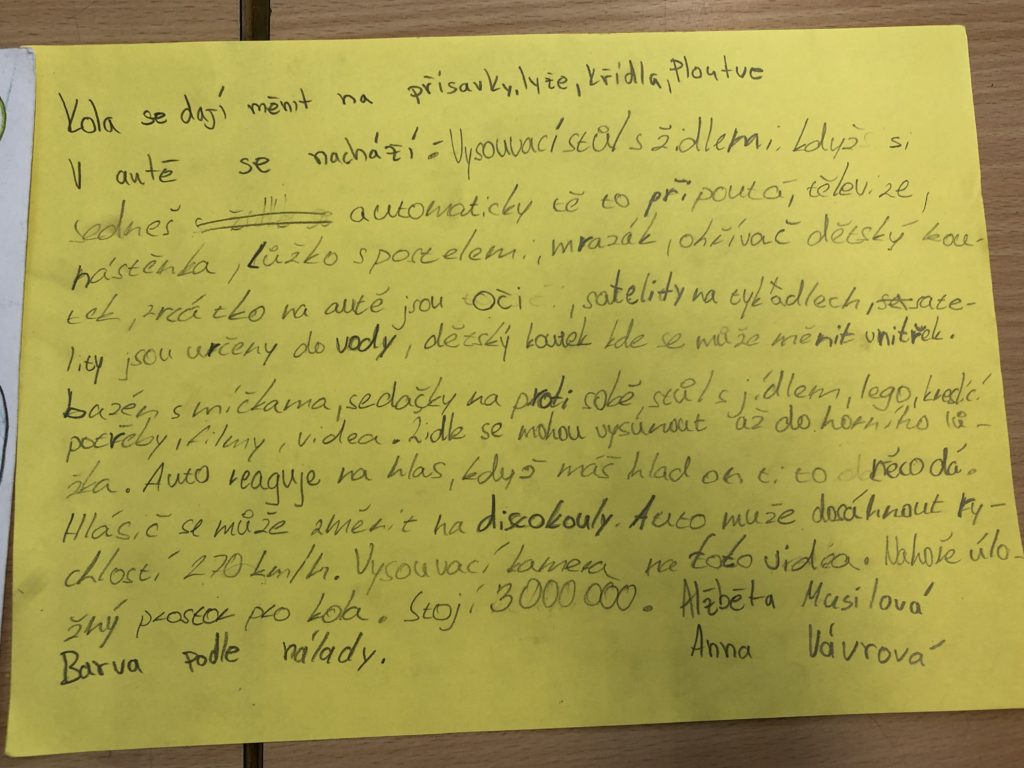 Kola se dají měnit na přísavky, lyže, křídla, Ploutve
V autě se nachází: Vysouvací stůl s židlemi když si
sedneš automaticky tě to připoutá, televize,
nástěnka, Lůžko s postelemi, mrazák, ohřívač dětský kou-
tek, zrcátko na autě jsou oči, satelity na tykadlech, sate-
lity jsou určeny do vody, dětský koutek kde se může měnit vnitřek.
bazén s míčkama, sedačky na proti sobě, stůl s jídlem, lego, kredící
potřeby, filmy, videa. Židle se mohou vysunout až do horního lů-
žka. Auto reaguje na hlas, když máš hlad on ti to něco dá.
Hlásič se může změnit na discokouly. Auto muže dosáhnout ry-
chlostí 270 km/h. Vysouvací kamera na foto videa. Nahoře úlo-
žný prostor pro kola. Stojí 3000000. Alžběta Musilová
Barva podle nálady. Anna Vávrová